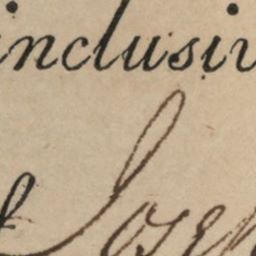 inclusiv
Josep